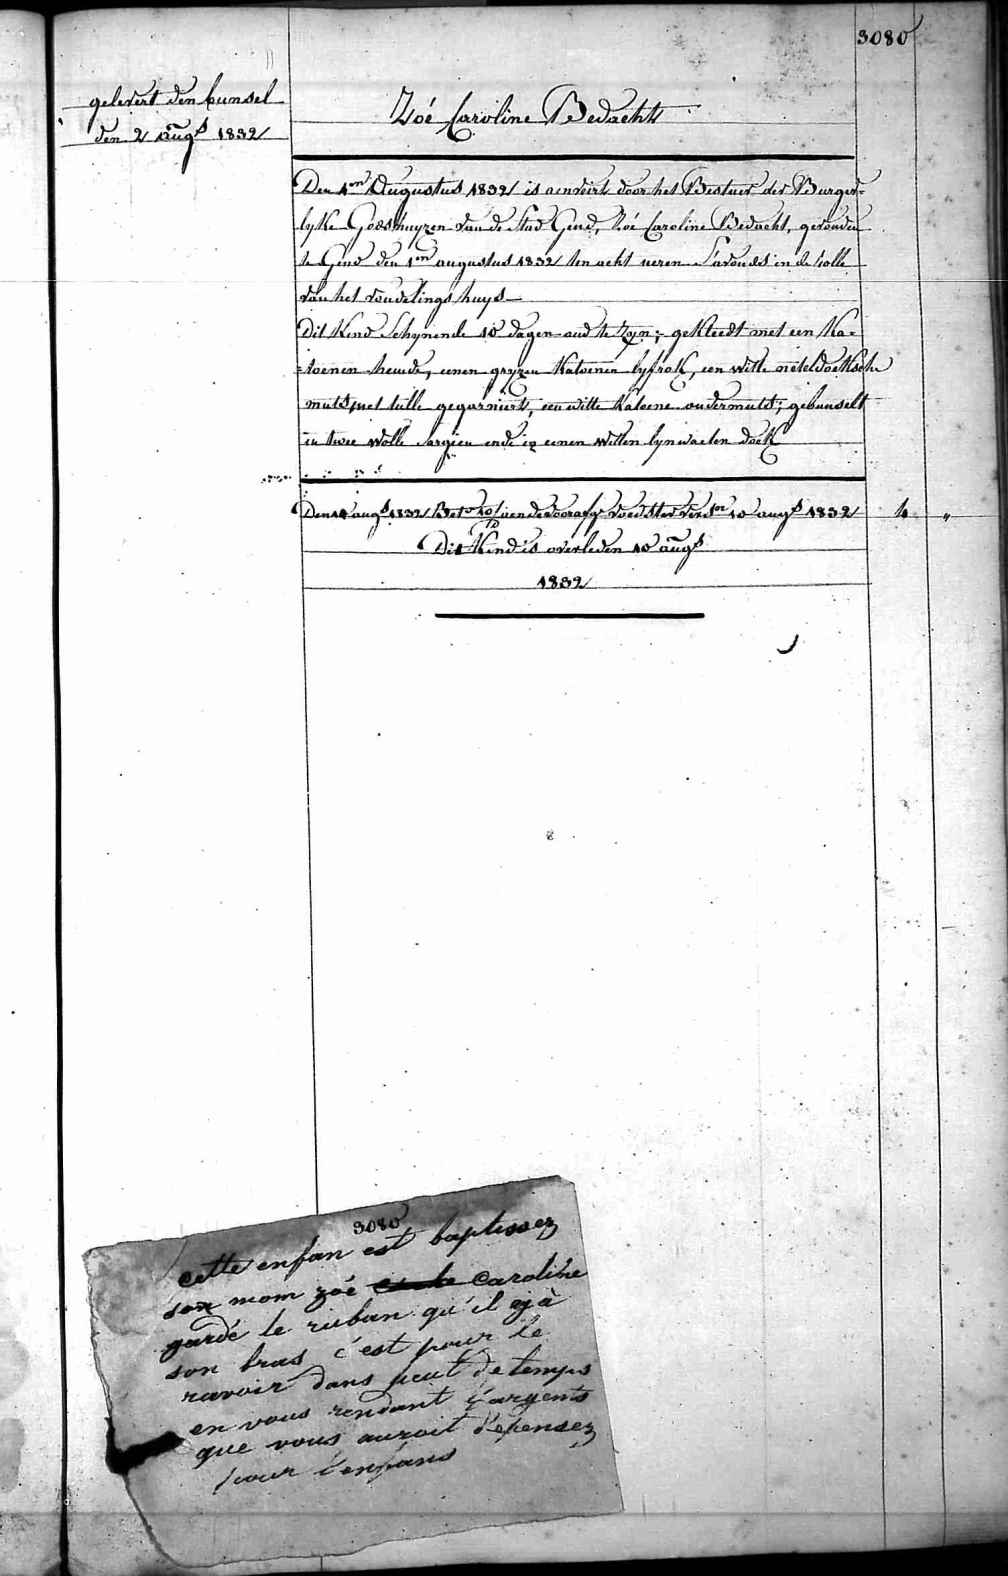 3080
gelevert den bunsel
den 2 augs 1832
Zoé Caroline Bedacht
Den 1en Augustus 1832 is aenveirt door het Bestuer der Burger=
lyke Godshuyzen van de Stad Gend, Zoé Caroline Bedacht, gevonden
te Gend den 1en augustus 1832 ten acht ueren s'avonds in de rolle
van het vondelings huys
Dit Kind Schynende 10 dagen oud te zyn; gekleedt met een Ka=
=toenen hemde, eenen gryzen Katoenen lyfrok, een witte neteldoeksche
muts met tulle gegarniert, een witte Katoene ondermuts; gebunselt
in twee wolle Sargien ende in eenen witten lynwaeten doek
Den 14 augs 1832 Bet. 10 aen de voedster 10 augs 1832 4 "
Dit Kind is overleden 10 augs
1832
3080
cette enfan est baptissez
son mom zoé caroline
gardé le ruban qu'il ÿ à
son bras c'est pour le
ravoir dans peut de temps
en vous rendant l'argents
que vous auroit dépensez
pour l'enfans